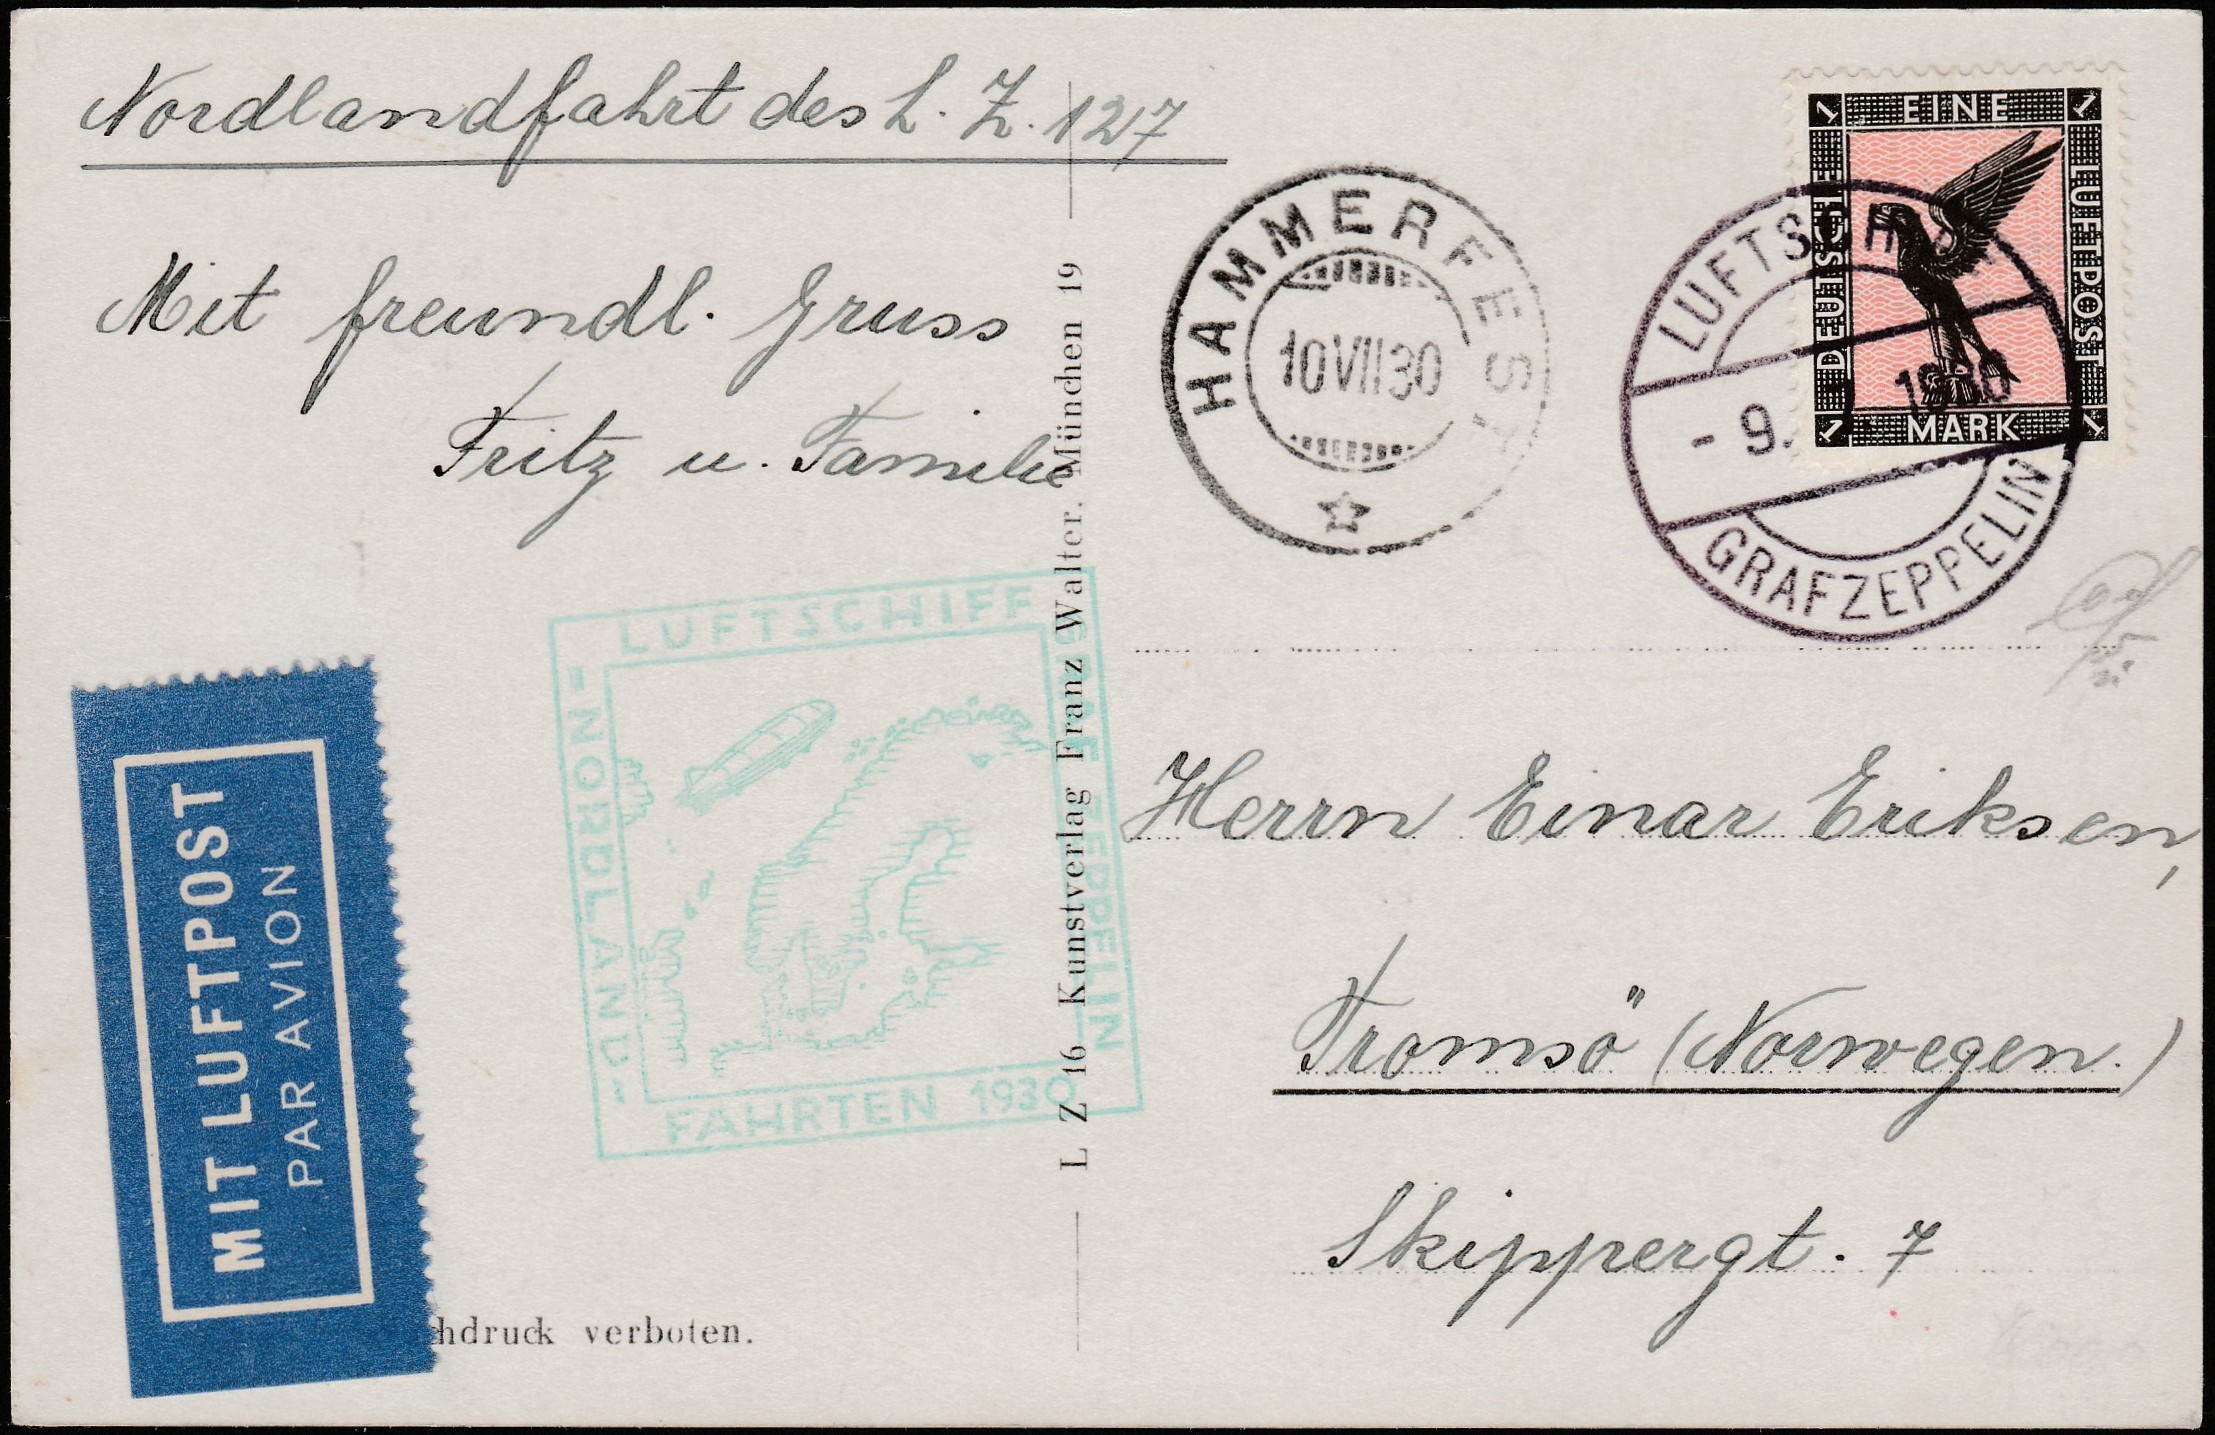 Nordlandfahrt des L. Z. 127
Mit freundl. Gruss
Fritz u. Familie
HAMMERFEST
10 VII 30
EINE
DEUTSCHE
LUFTPOST
MARK
1 1
1 1
LUFTSCHIFF
- 9. 1930
GRAFZEPPELIN
LUFTSCHIFF
GRAF ZEPPELIN
-NORDLAND-
FAHRTEN 1930
MIT LUFTPOST
PAR AVION
L Z 16 Kunstverlag Franz Walter. München 19
Herrn Einar Eriksen,
Tromsö (Norwegen.)
Skippergt. 7
chdruck verboten.